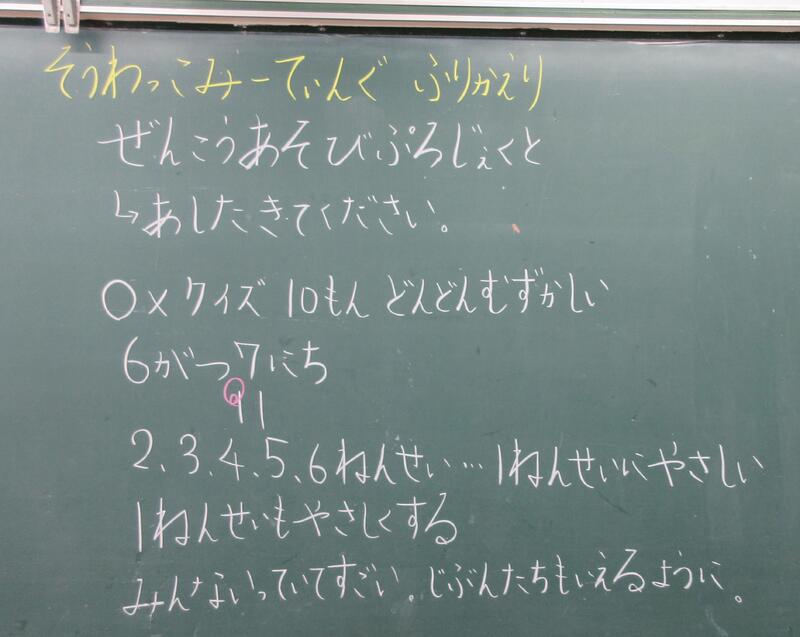 そうわっこみーてぃんぐ ふりかえり
ぜんこうあそびぷろじぇくと
↳あしたきてください。
○×クイズ 10もん どんどんむずかしい
6がつ7にち
11
2、3、4、5、6ねんせい…1ねんせいにやさしい
1ねんせいもやさしくする
みんないっていてすごい。じぶんたちもいえるように。